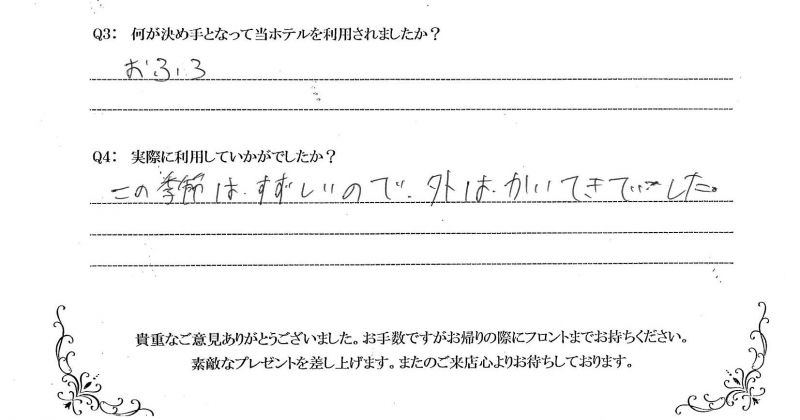 Q3： 何が決め手となって当ホテルを利用されましたか？
おふろ
Q4： 実際に利用していかがでしたか？
この季節は、すずしいので、外は、かいてきでした。
貴重なご意見ありがとうございました。お手数ですがお帰りの際にフロントまでお持ちください。
素敵なプレゼントを差し上げます。またのご来店心よりお待ちしております。